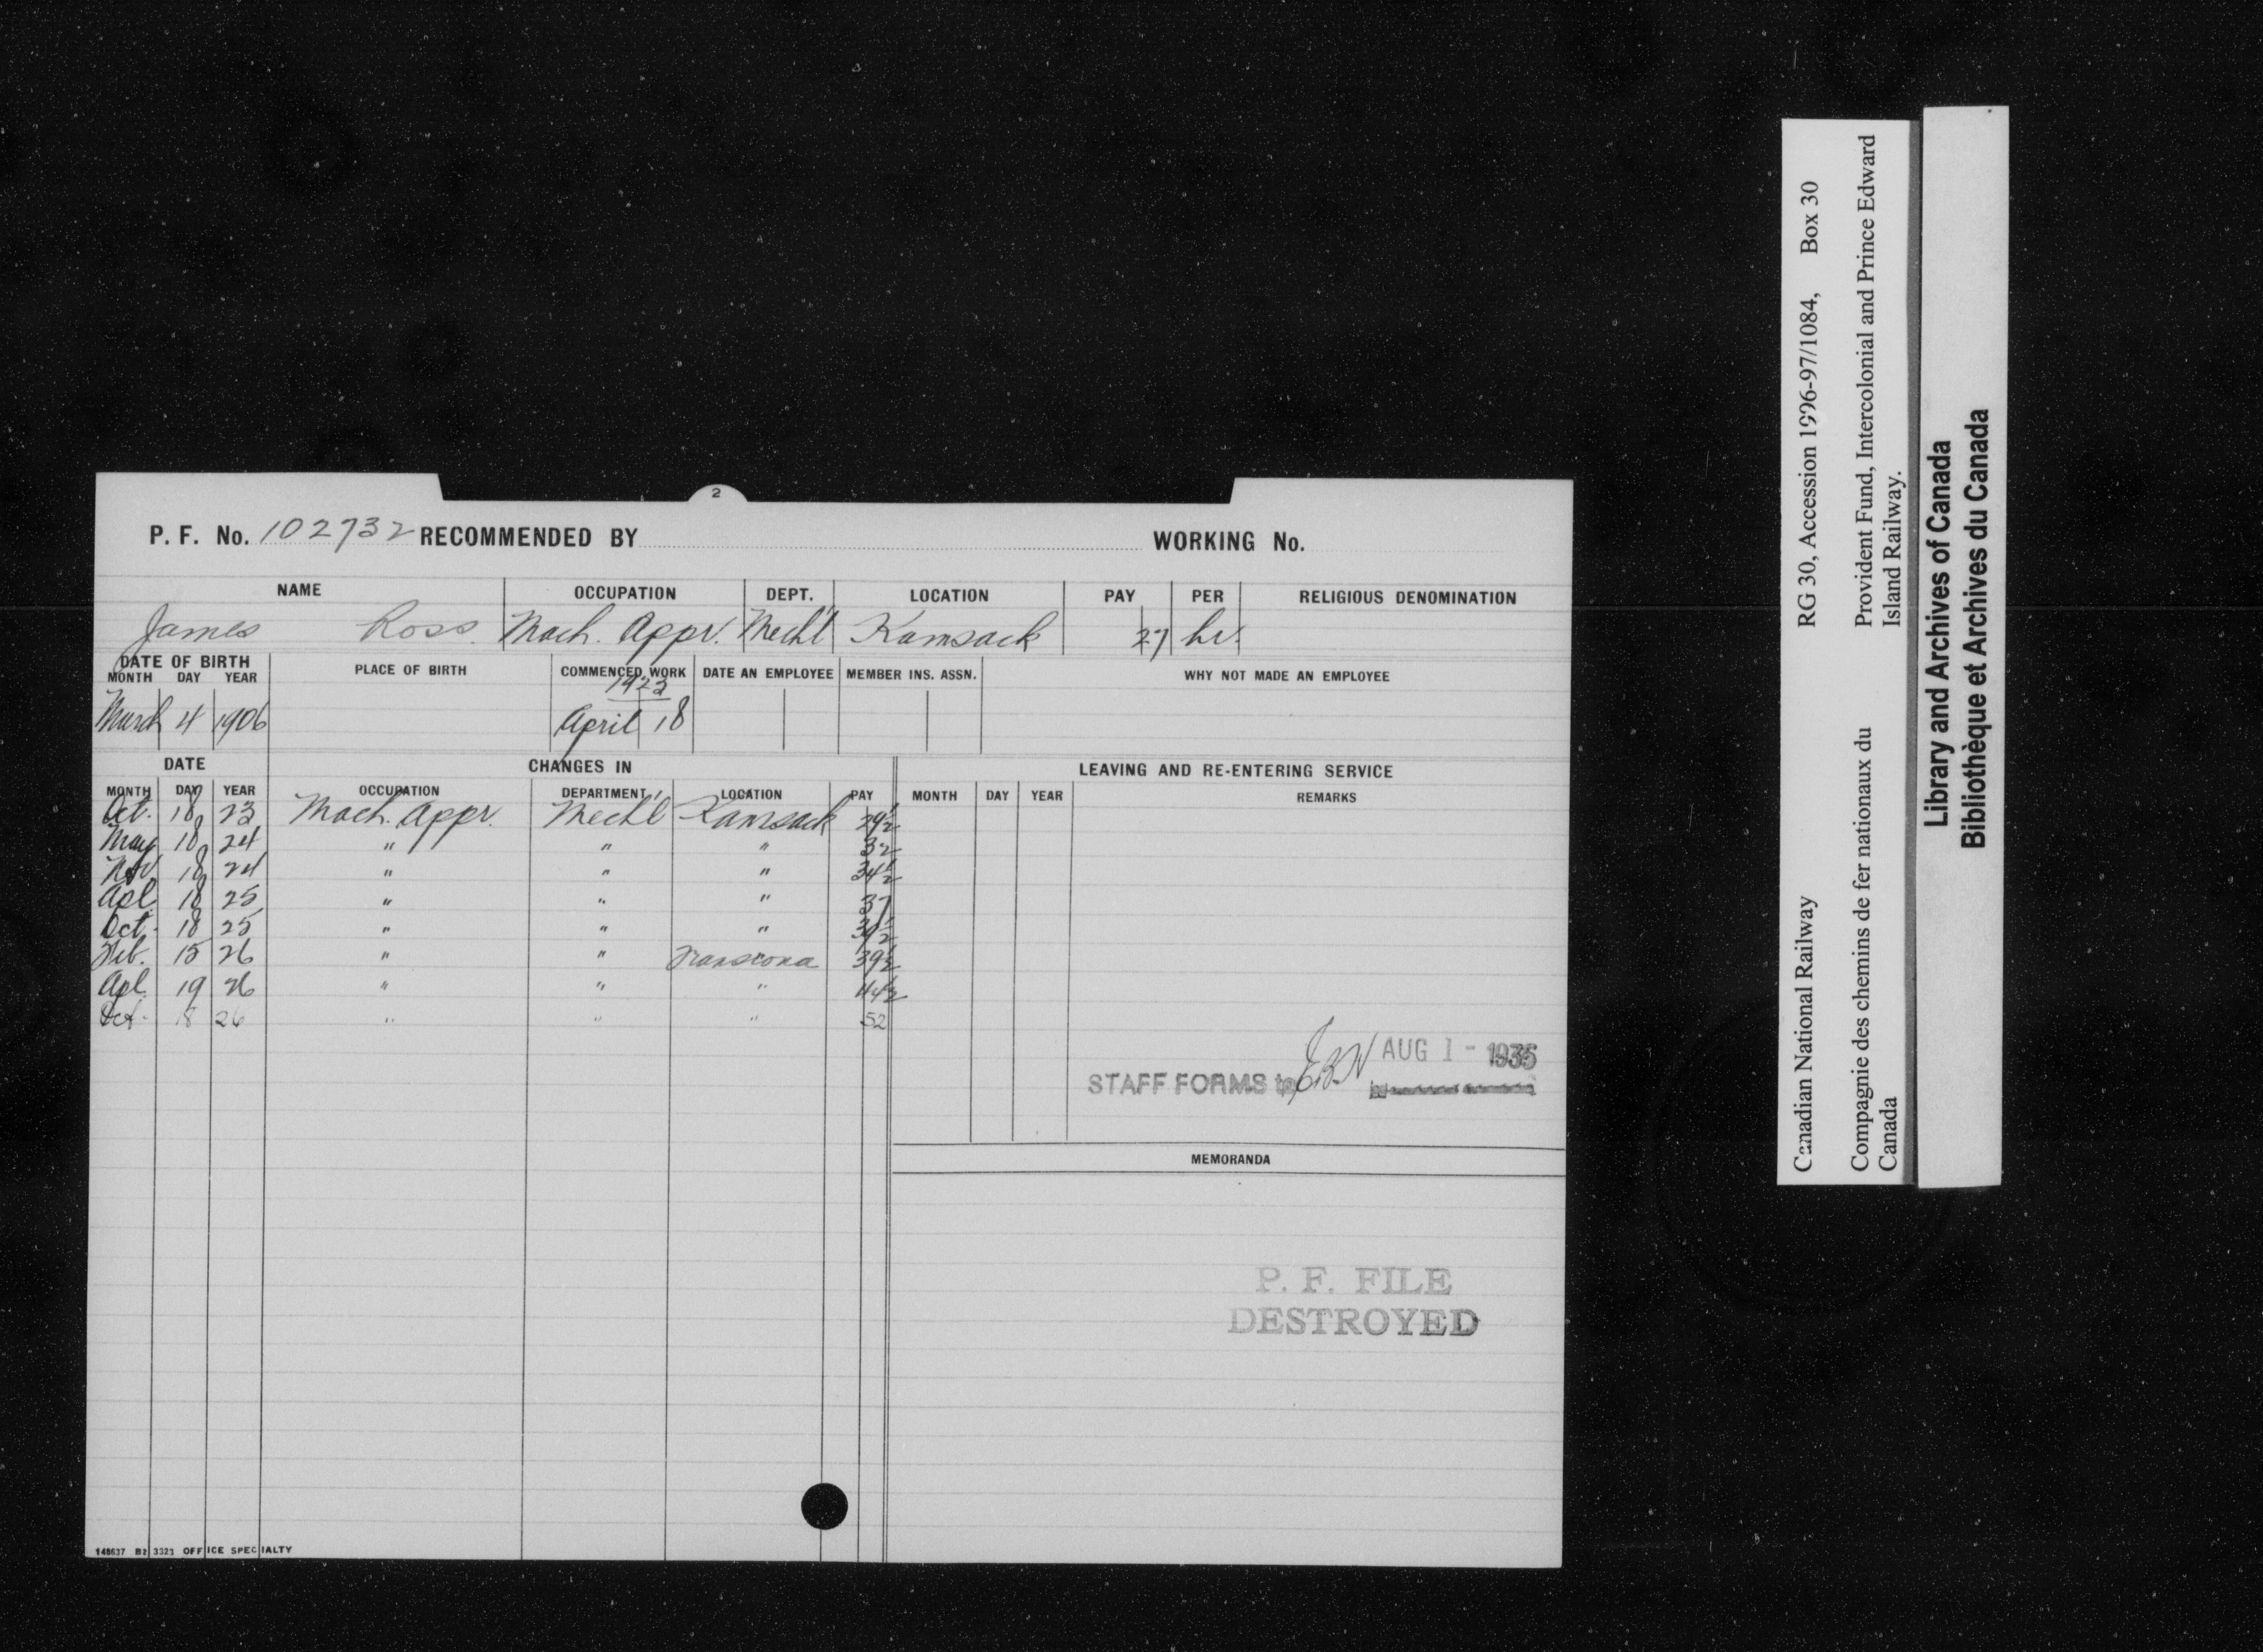 2
P. F. No. 102732 RECOMMENDED BY WORKING No.
NAME OCCUPATION DEPT. LOCATION PAY PER RELIGIOUS DENOMINATION
James Ross. Mach. Appr. Mech'l Kamsack 27 hr.
DATE OF BIRTH PLACE OF BIRTH COMMENCED WORK DATE AN EMPLOYEE MEMBER INS. ASSN. WHY NOT MADE AN EMPLOYEE
MONTH DAY YEAR
1923
March 4 1906 April 18
DATE CHANGES IN LEAVING AND RE-ENTERING SERVICE
MONTH DAY YEAR OCCUPATION DEPARTMENT LOCATION PAY MONTH DAY YEAR REMARKS
Oct. 18 23 Mach. Appr. Mech'l Kamsack 29½
May 18 24 " " " 32
Nov 18 24 " " " 34½
Apl. 18 25 " " " 37
Oct. 18 25 " " " 39½
Feb. 15 26 " " Transcona 39½
Apl. 19 26 " " " 44½
Oct. 18 26 " " " 52
AUG 1 - 1935
STAFF FORMS to
MEMORANDA
P. F. FILE
DESTROYED
148637 B2 3323 OFFICE SPECIALTY
Canadian National Railway RG 30, Accession 1996-97/1084, Box 30
Compagnie des chemins de fer nationaux du Provident Fund, Intercolonial and Prince Edward
Canada Island Railway.
Library and Archives of Canada
Bibliothèque et Archives du Canada